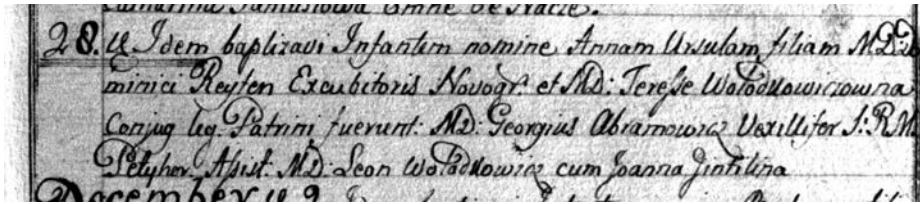 28. Idem baptizavi Infantem nomine Annam Ursulam filiam MD: Do
minici Reyten Excubitoris Novogr: et MD: Teresse Wołodkowiczowna
Conjug leg. Patrini fuerunt: MD: Georgius Abramowicz Vexillifer S: R M
Petyhor. Assist: MD: Leon Wołodkowicz cum Joanna Jintilina
December